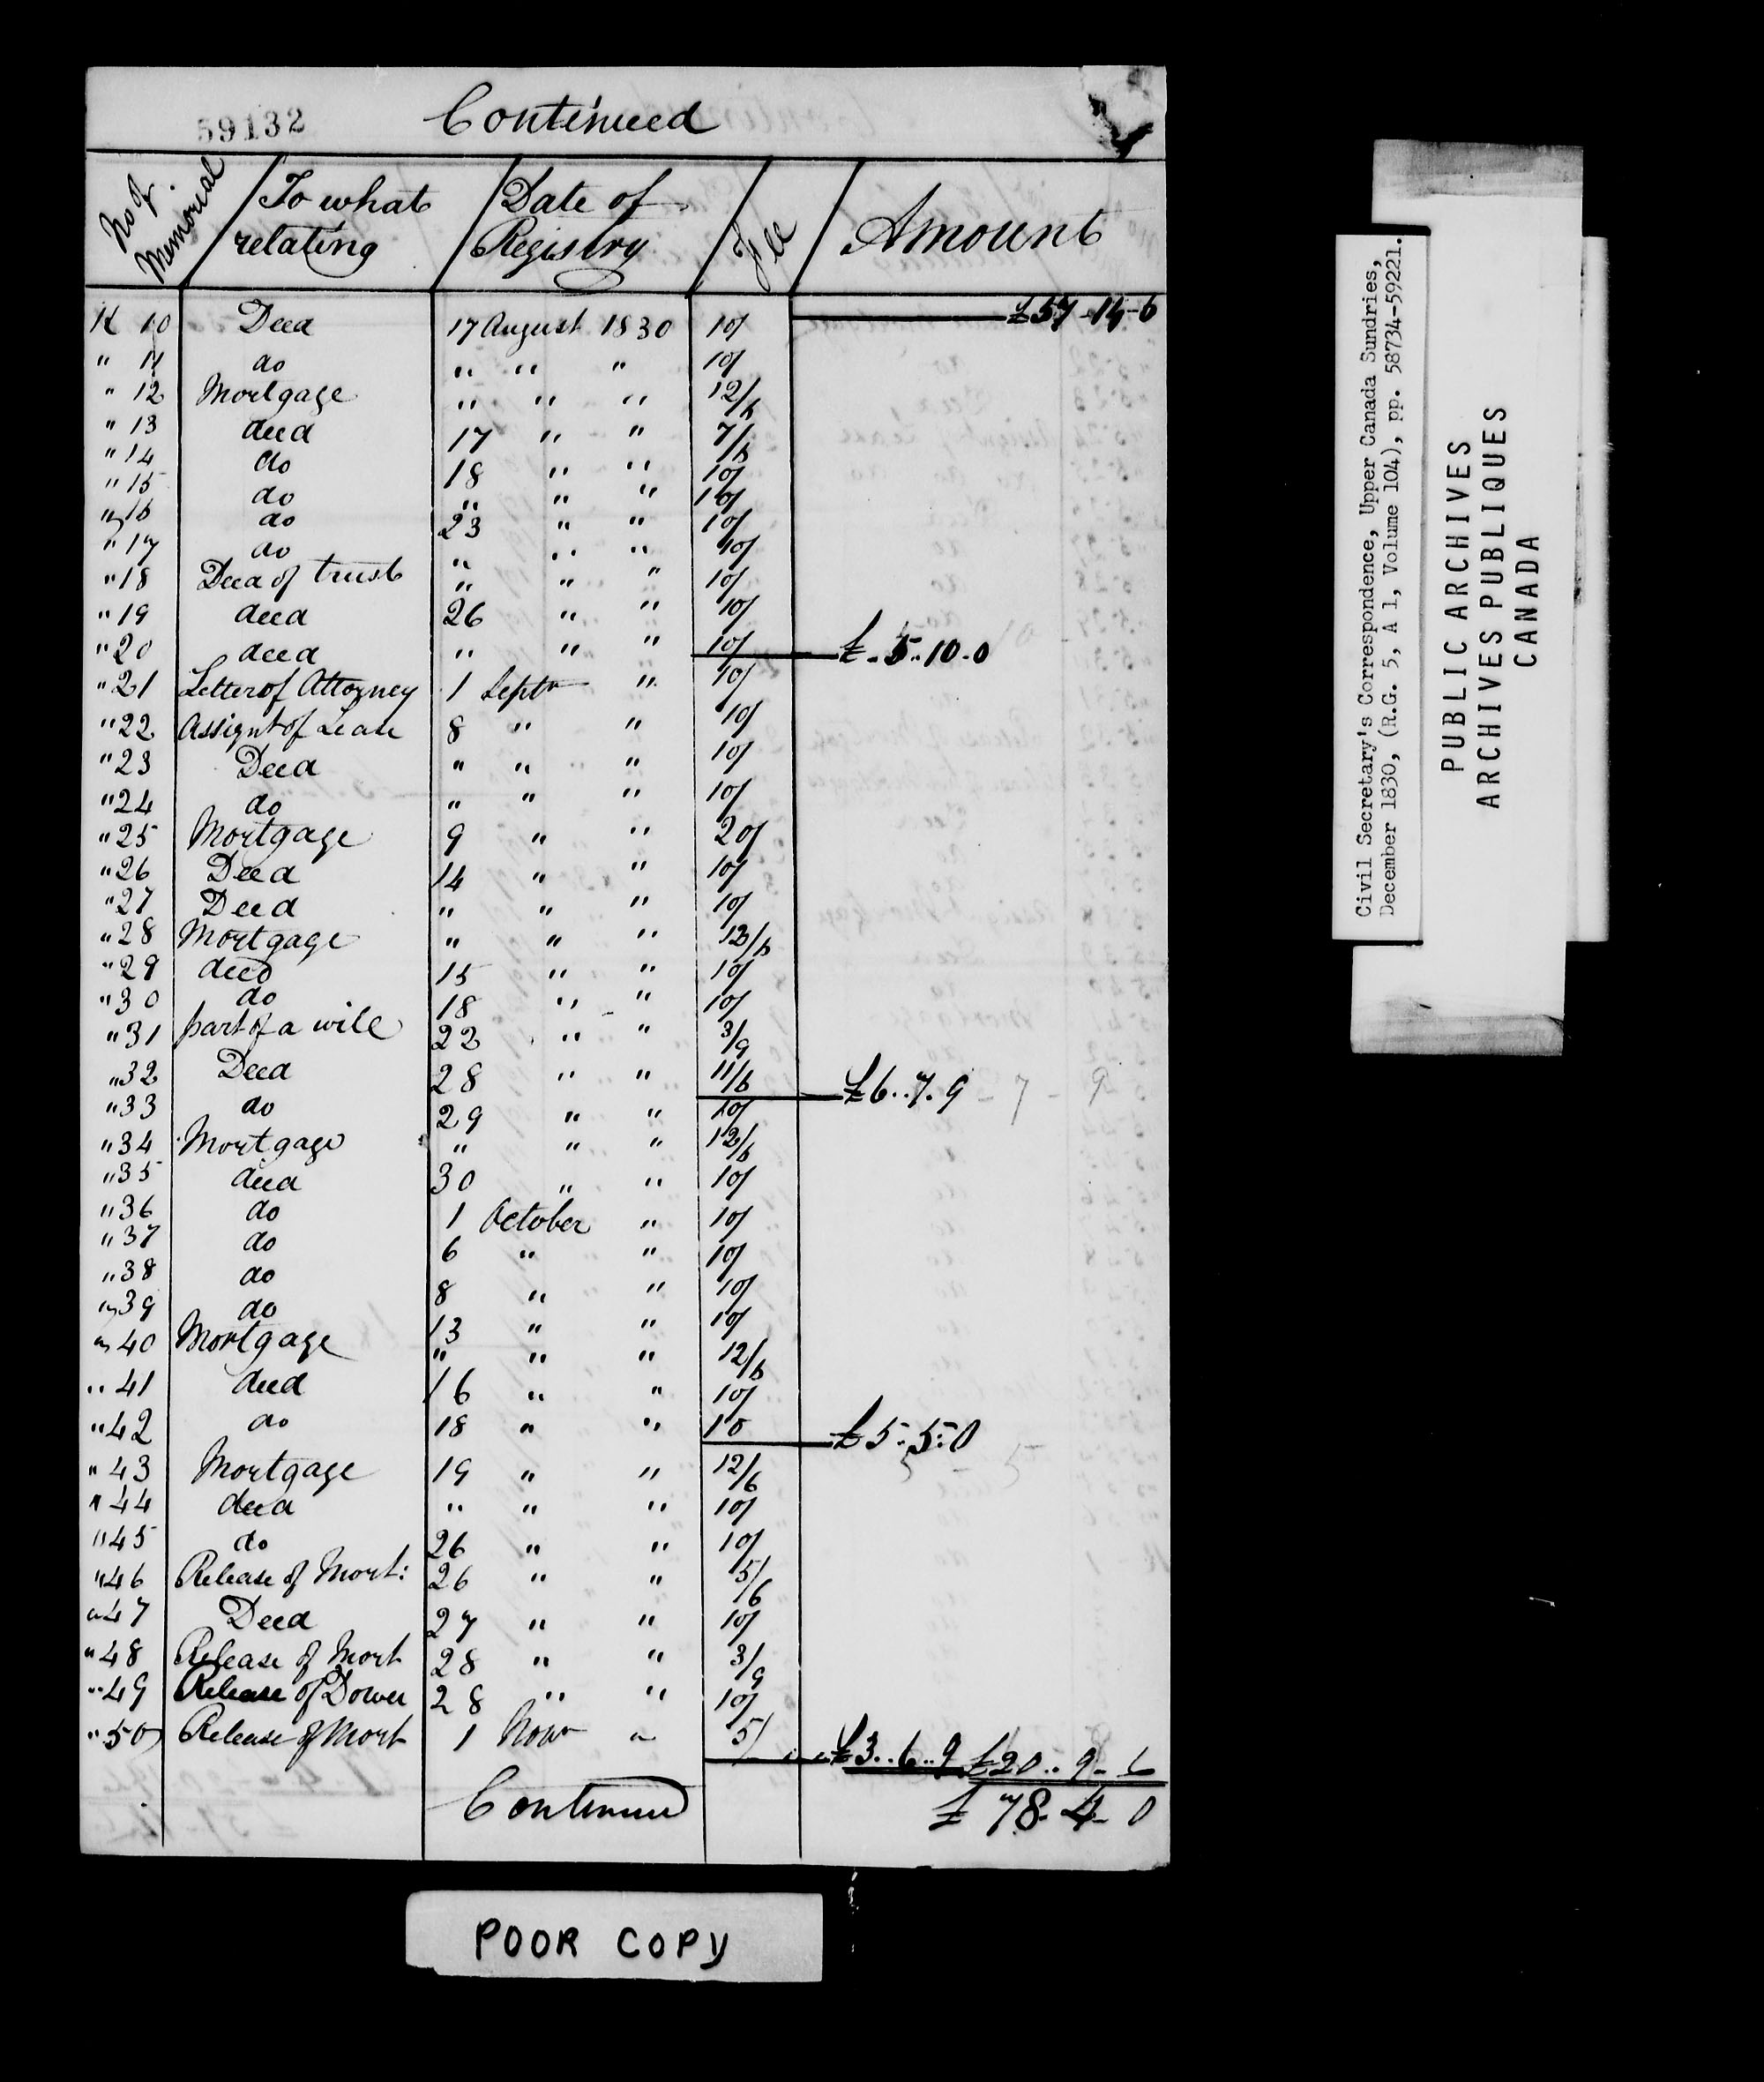 59132
Continued
No of Memorial | To what relating | Date of Registry | Fee | Amount
£57-14-6
K 10 Deed 17 August 1830 10/
" 11 do " " " 10/
" 12 Mortgage " " " 12/6
" 13 deed 17 " " 7/6
" 14 do 18 " " 10/
" 15 do " " " 10/
" 16 do 23 " " 10/
" 17 do " " " 10/
" 18 Deed of trust " " " 10/
" 19 deed 26 " " 10/
" 20 deed " " " 10/ £5..10-0
" 21 Letter of Attorney 1 Septr " 10/
" 22 Assignt of Lease 8 " " 10/
" 23 Deed " " " 10/
" 24 do " " " 10/
" 25 Mortgage 9 " " 20/
" 26 Deed 14 " " 10/
" 27 Deed " " " 10/
" 28 Mortgage " " " 12/6
" 29 deed 15 " " 10/
" 30 do 18 " " 10/
" 31 part of a will 22 " " 3/9
" 32 Deed 28 " " 11/6 £6..7.9 - 7 - 9
" 33 do 29 " " 10/
" 34 Mortgage " " " 12/6
" 35 deed 30 " " 10/
" 36 do 1 October " 10/
" 37 do 6 " " 10/
" 38 do 8 " " 10/
" 39 do 13 " " 10/
" 40 Mortgage " " " 12/6
" 41 deed 16 " " 10/
" 42 do 18 " " 10 £5:5:0
" 43 Mortgage 19 " " 12/6
" 44 deed " " " 10/
" 45 do 26 " " 10/
" 46 Release of Mort: 26 " " 5/6
" 47 Deed 27 " " 10/
" 48 Release of Mort 28 " " 3/9
" 49 Release of Dower 28 " " 10/
" 50 Release of Mort 1 Novr " 5/ £3..6..9 £20..9-6
Continued £78-4-0
POOR COPY
Civil Secretary's Correspondence, Upper Canada Sundries,
December 1830, (R.G. 5, A 1, Volume 104), pp. 58734-59221.
PUBLIC ARCHIVES
ARCHIVES PUBLIQUES
CANADA